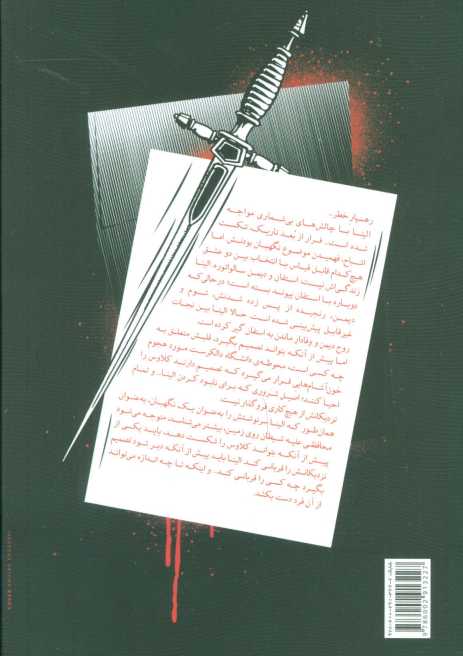 رهسپار خطر...
النا با چالش‌های بی‌شماری مواجه
شده است. فرار از بُعد تاریک، شکست
اشباح، فهمیدن موضوع نگهبان بودنش اما
هیچ‌کدام قابل قیاس با انتخاب بین دو عشق
زندگی‌اش نیست: استفان و دیمن سالواتوره. النا
دوباره با استفان پیوند بسته است؛ درحالی‌که
دیمن، رنجیده از پس زده شدنش، شوم و
غیرقابل پیش‌بینی شده است. حالا النا بین نجات
روح دیمن و وفادار ماندن به استفان گیر کرده است.
اما پیش از آنکه بتواند تصمیم بگیرد قلبش متعلق به
چه کسی است، محوطه‌ی دانشگاه دالکرست مورد هجوم
خون‌آشام‌هایی قرار می‌گیرد که تصمیم دارند کلاوس را
احیا کنند؛ اصیل شروری که برای نابود کردن النا و تمام
نزدیکانش از هیچ کاری فروگذار نیست.
همان‌طور که النا سرنوشتش را به‌عنوان یک نگهبان، به‌عنوان
محافظی علیه شیطان روی زمین، بیشتر می‌شناسد، متوجه می‌شود
پیش از آنکه بتواند کلاوس را شکست دهد، باید یکی از
نزدیکانش را قربانی کند. النا باید پیش از آنکه دیر شود تصمیم
بگیرد چه کسی را قربانی کند. و اینکه تا چه اندازه می‌تواند
از آن فرد دست بکشد.
9 786002 913227